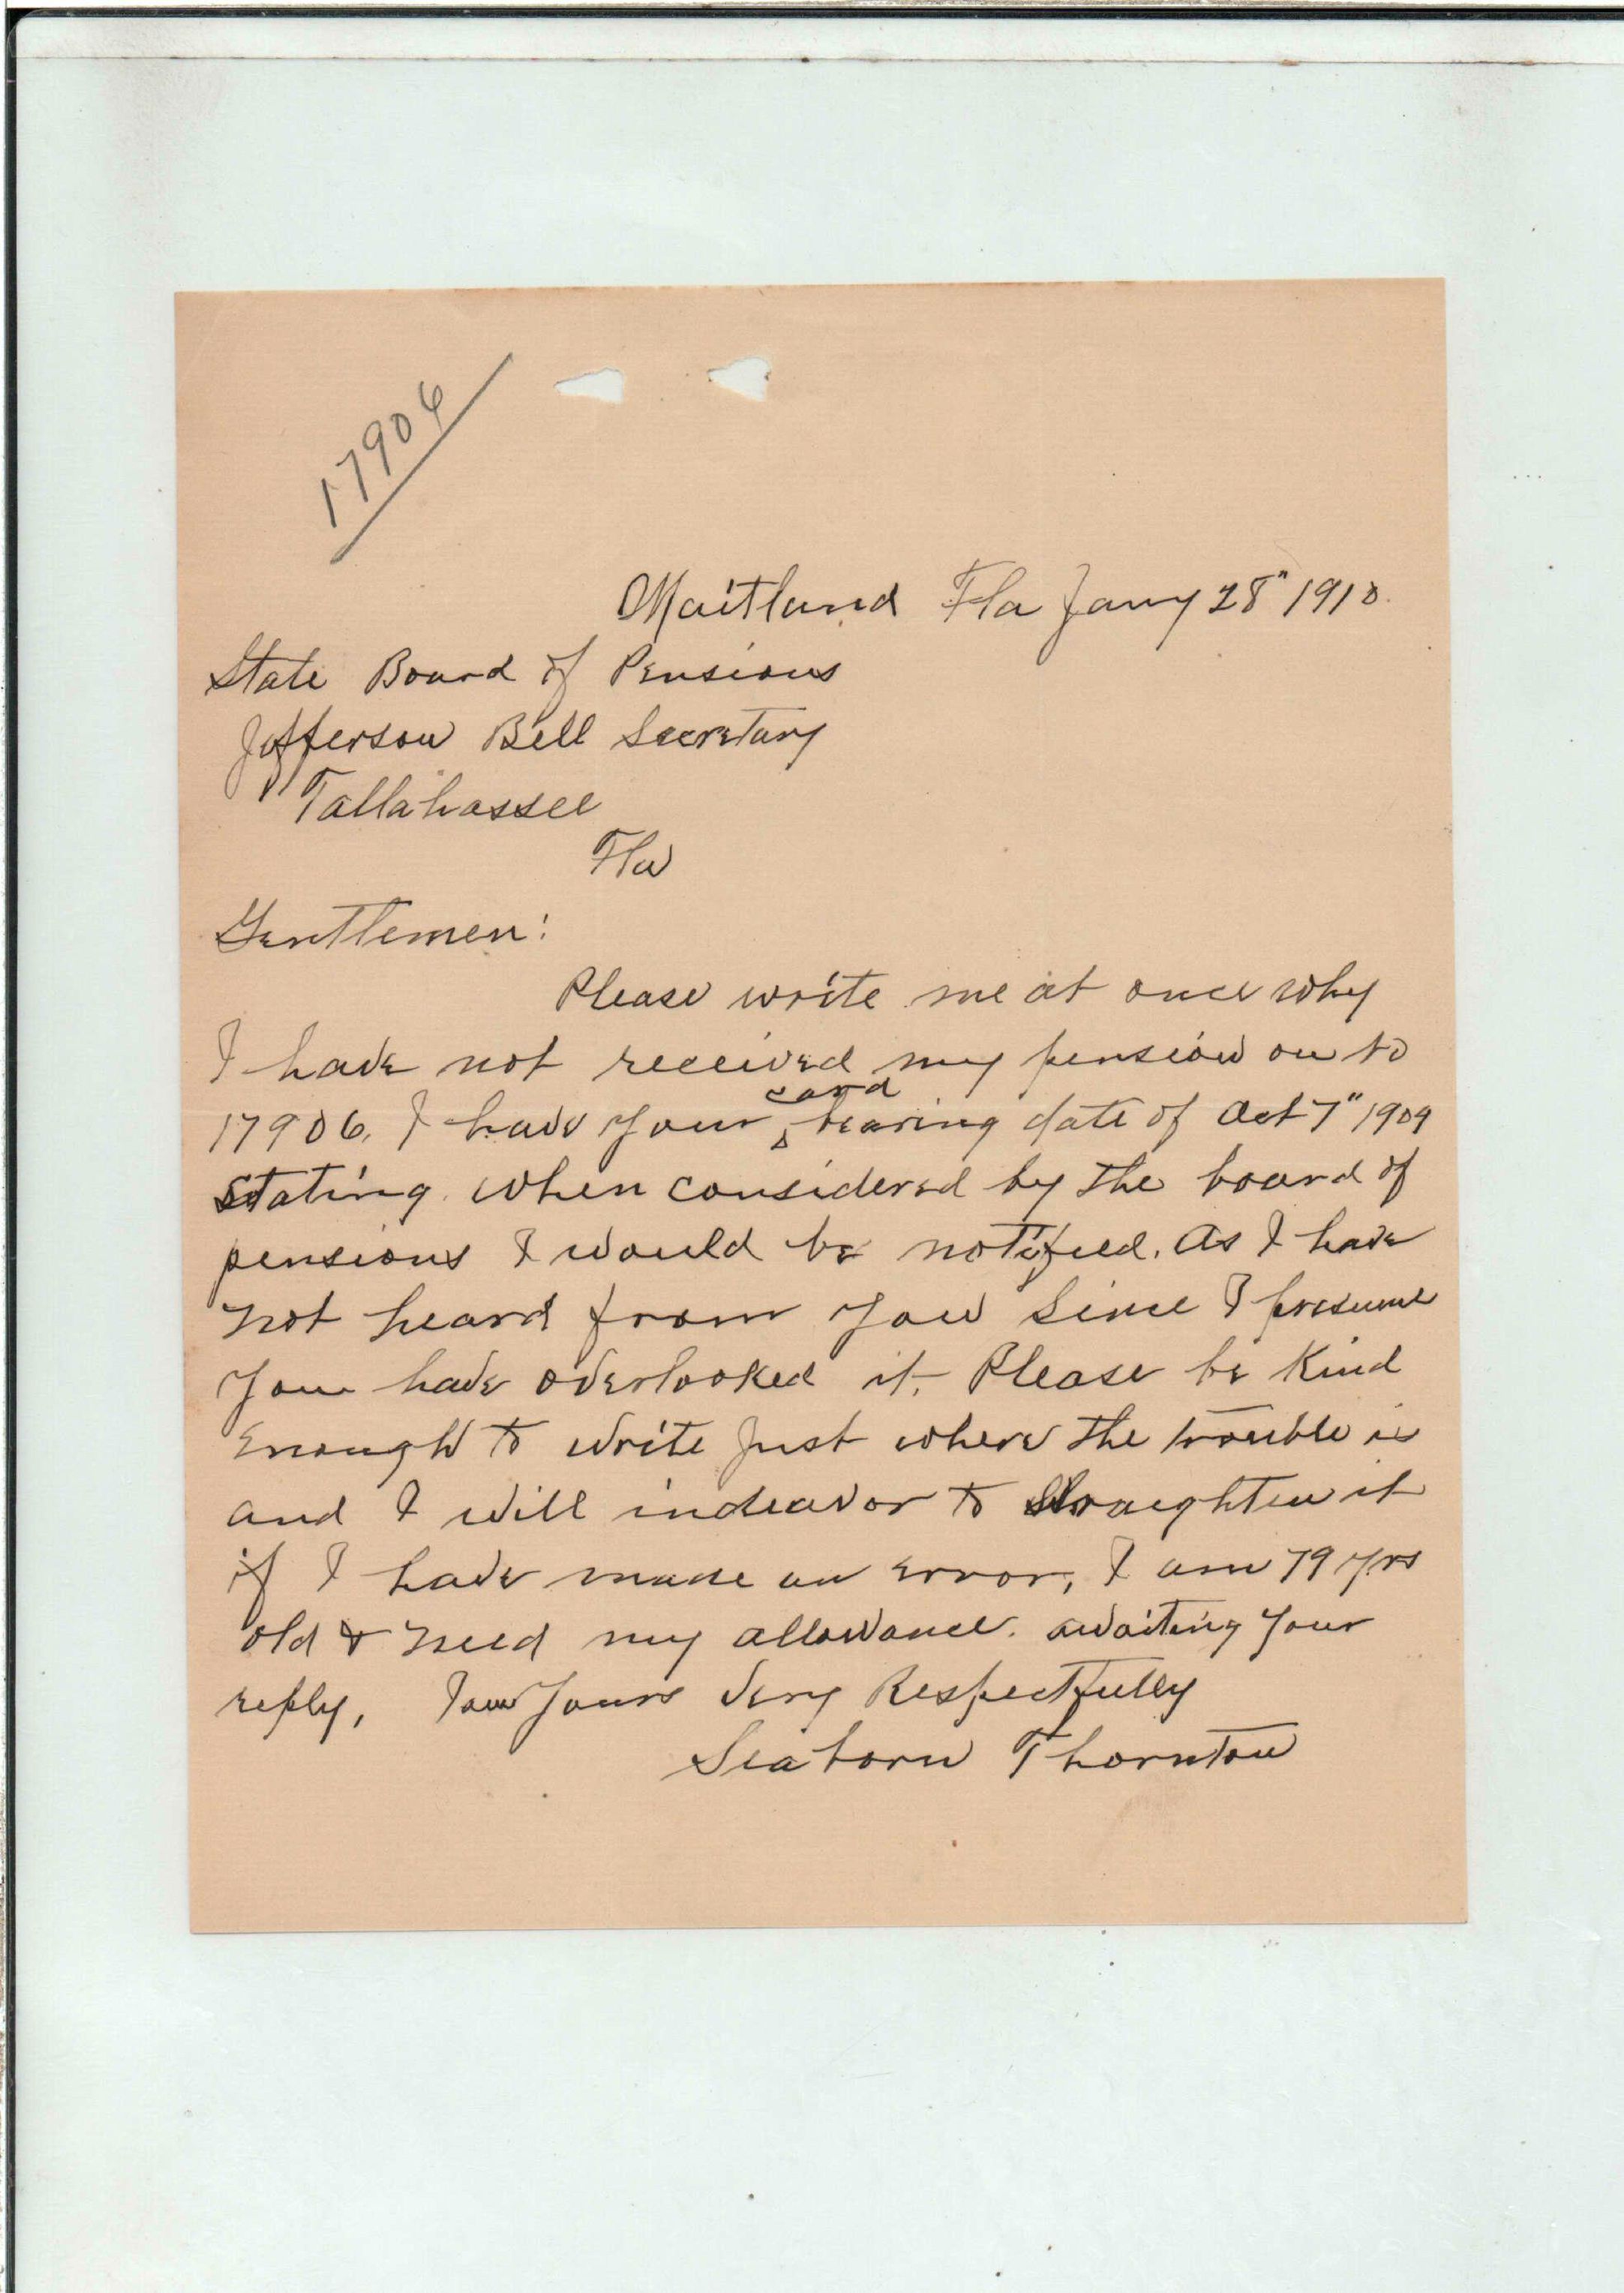 17906
Maitland Fla Jany 28" 1910.
State Board of Pensions
Jefferson Bell Secretary
Tallahassee
Fla
Gentlemen:
Please write me at once why
I have not received my pension on to
card
17906. I have your bearing date of Oct 7" 1909
Stating when considered by the board of
pensions I would be notified. As I have
not heard from you Since I presume
you have overlooked it. Please be Kind
Enough to write Just where the trouble is
and I will indeavor to straighten it
if I have made an error, I am 79 yrs
old & need my allowance. awaiting your
reply, I am Yours Very Respectfully
Seaborn Thornton